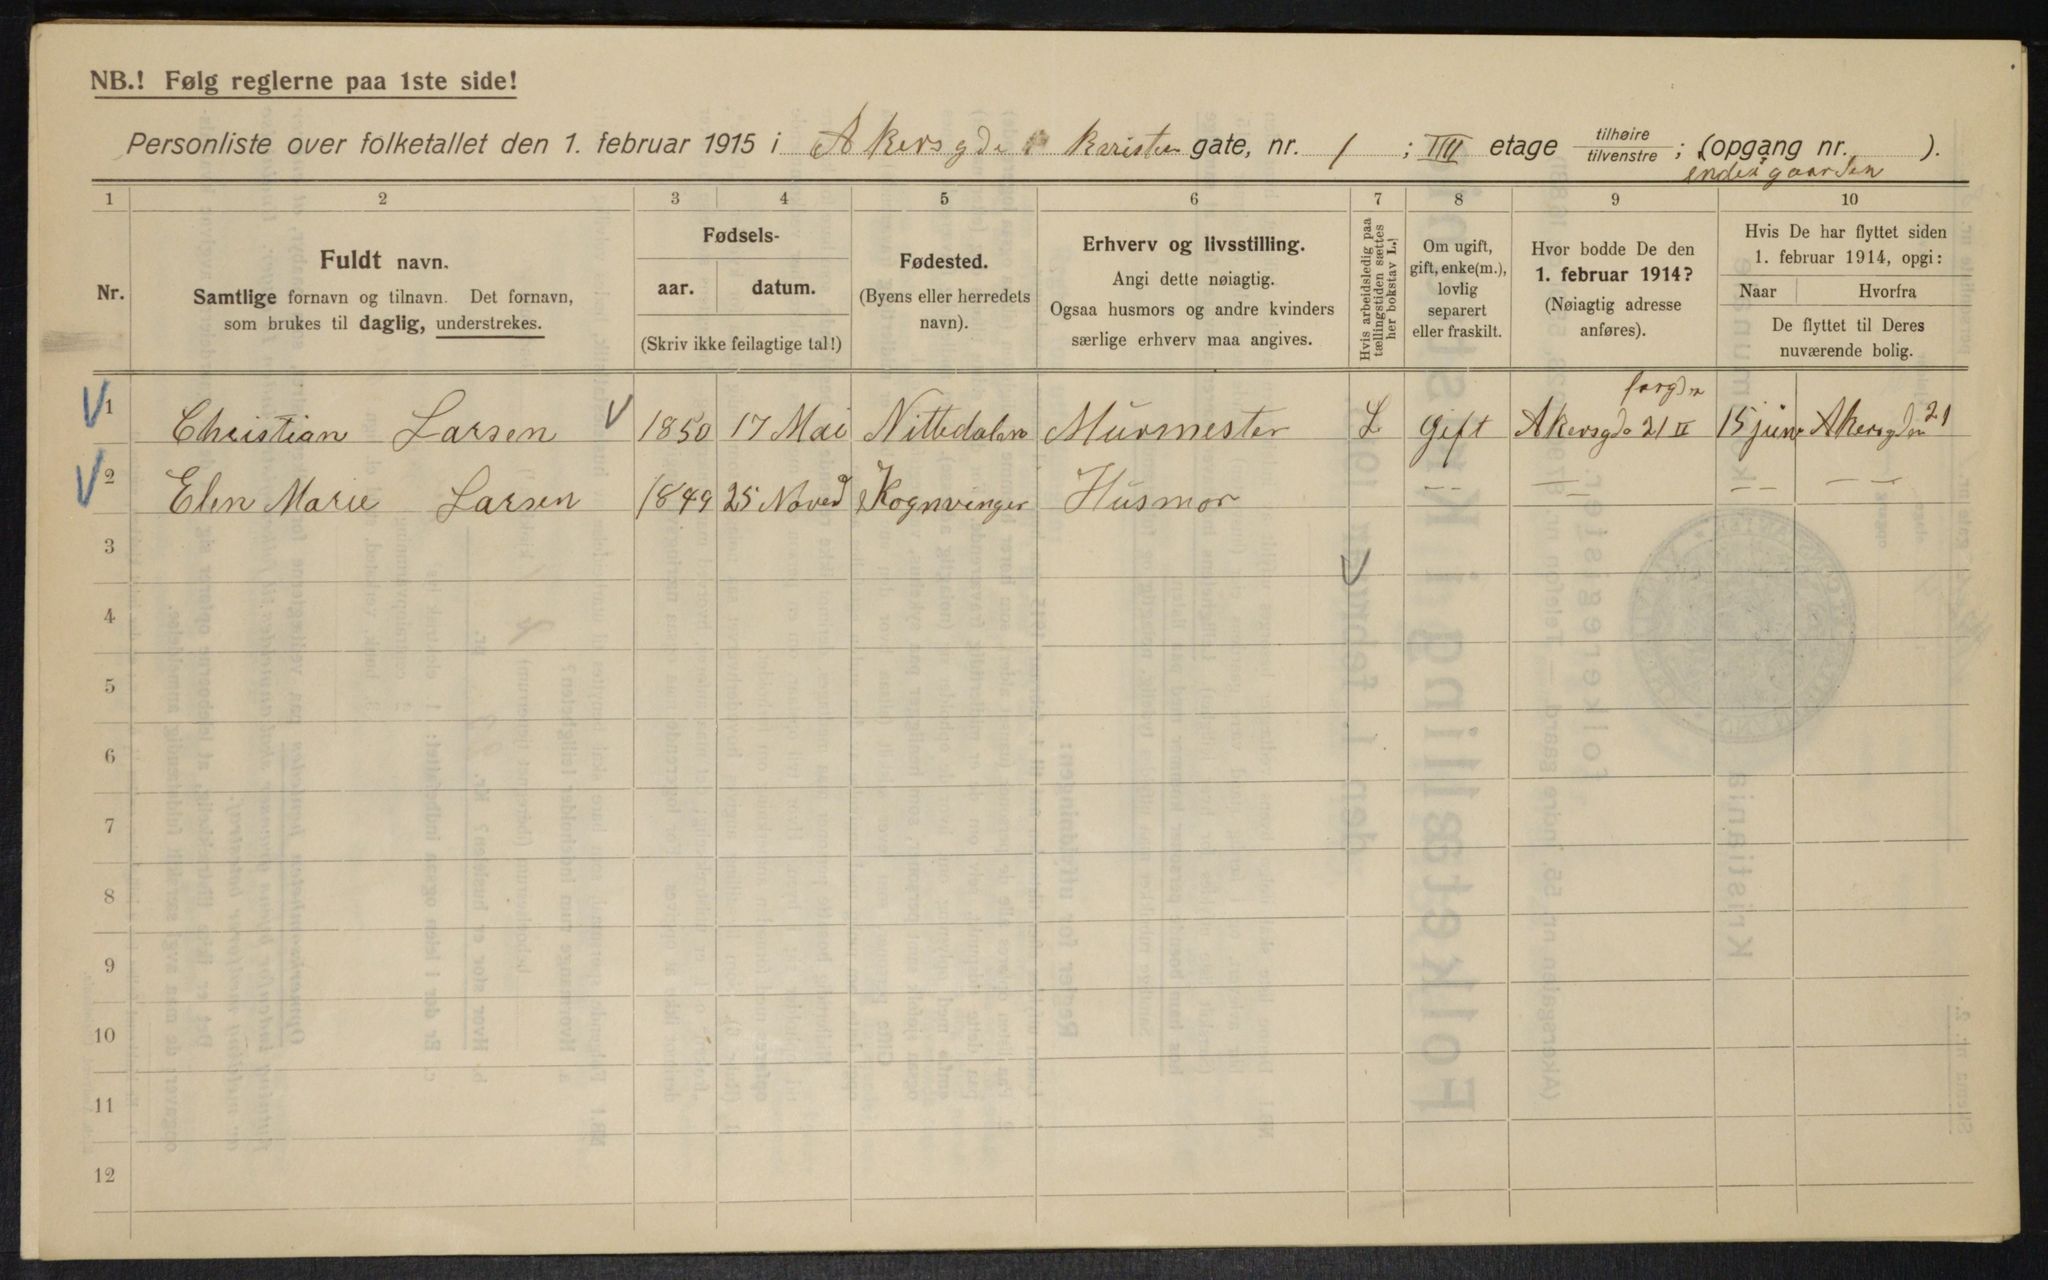 NB.! Følg reglerne paa 1ste side!
Personliste over folketallet den 1. februar 1915 i Akersgde 1 gate, nr. 1 ; III etage tilhøire/tilvenstre ; (opgang nr. ).
1 2 3 4 5 6 7 8 9 10
Nr.
Fuldt navn.
Samtlige fornavn og tilnavn. Det fornavn,
som brukes til daglig, understrekes.
Fødsels-
aar. datum.
(Skriv ikke feilagtige tal!)
Fødested.
(Byens eller herredets
navn).
Erhverv og livsstilling.
Angi dette nøiagtig.
Ogsaa husmors og andre kvinders
særlige erhverv maa angives.
Hvis arbeidsledig paa
tællingstiden sættes
her bokstav L.!
Om ugift,
gift, enke(m.),
lovlig
separert
eller fraskilt.
Hvor bodde De den
1. februar 1914?
(Nøiagtig adresse
anføres).
Hvis De har flyttet siden
1. februar 1914, opgi:
Naar Hvorfra
De flyttet til Deres
nuværende bolig.
1 Christian Larsen 1850 17 Mai Nittedalen Murmester L gift Akersgde 21 II 15 juni Akersgden 21
2 Elen Marie Larsen 1849 25 Noved Kognvinger Husmor — — — — — — — —
3
4
5
6
7
8
9
10
11
12